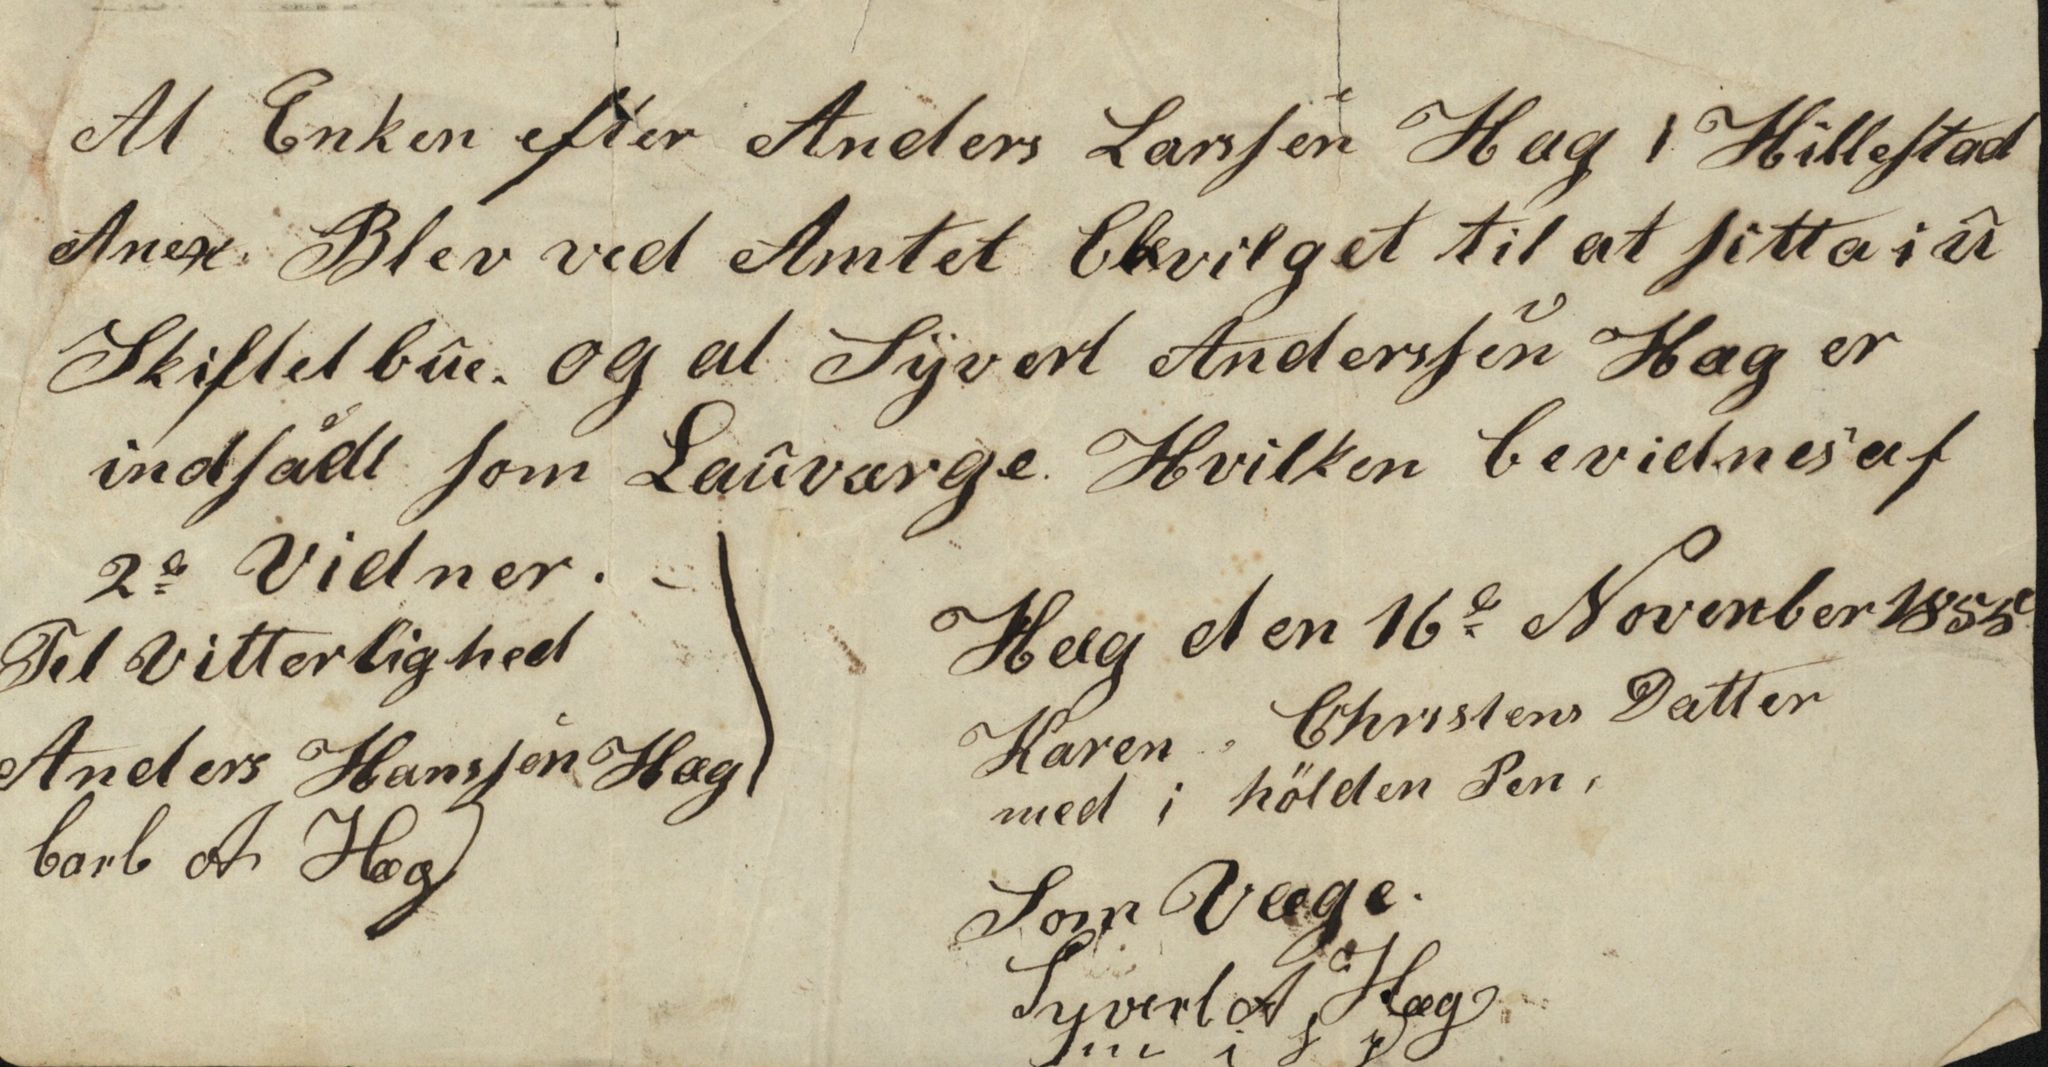 At Enken efter Anders Larssen Hag i Hillestad
Anex. Blev ved Amtet bevilget til at sitta i ü
Skiftet büe. og at Syvert Anderssen Hag er
indsådt som Laüværge. Hvilken bevidnes af
2de Vidner.
Tel Vitterlighed
Anders Hanssen Hag
barb A Hag
Hag den 16de November 1855
Karen Chrsstens Datter
med i hölden Pen,
Som Væge.
Syvert A Hag